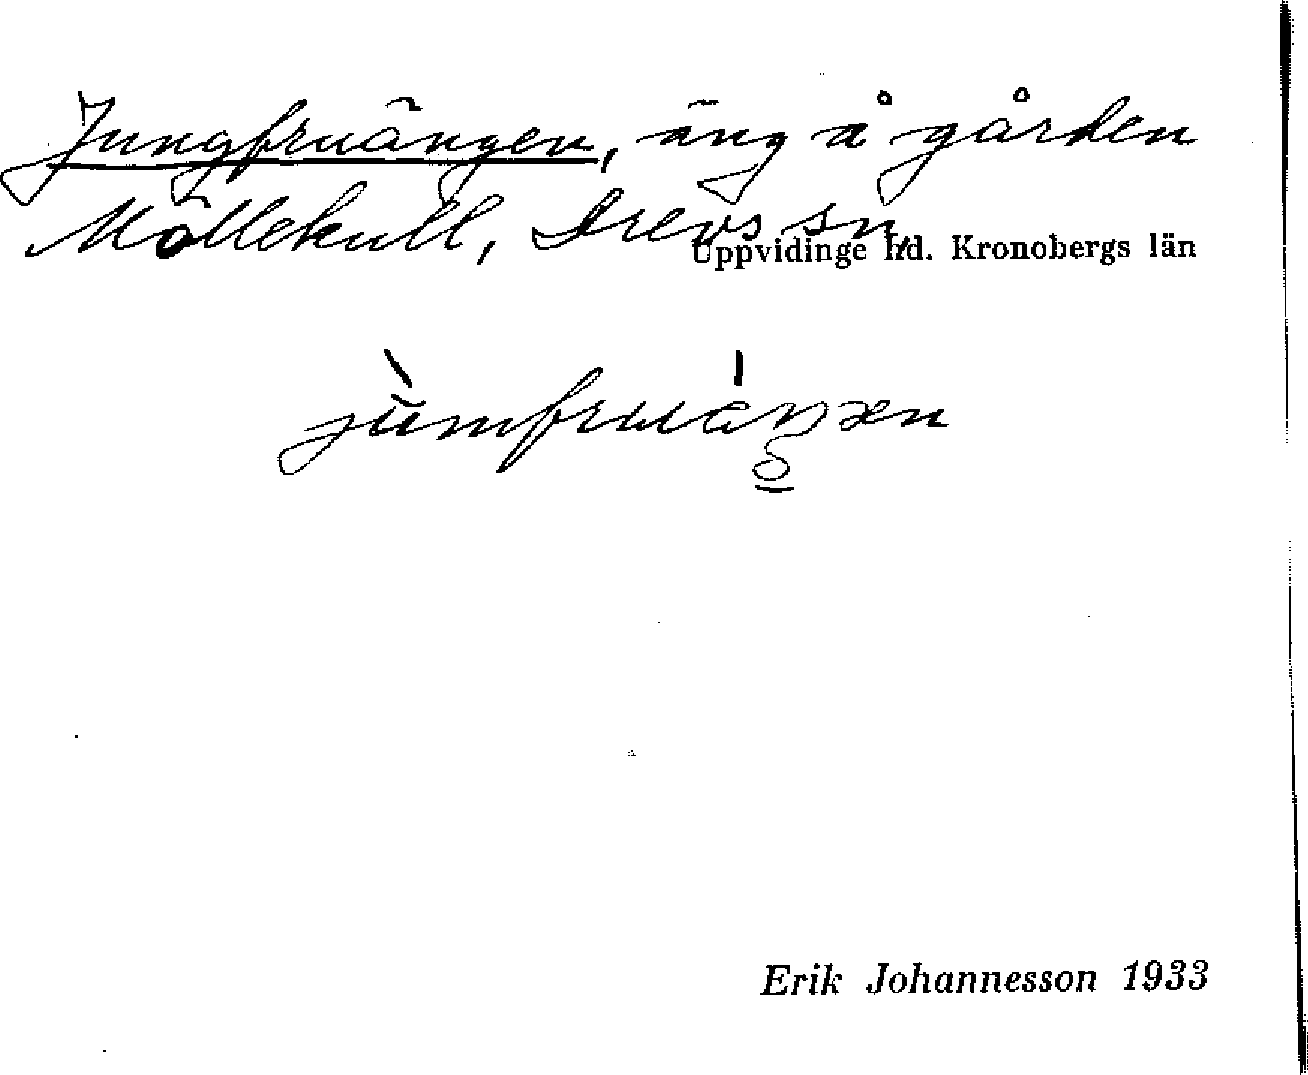 Jungfruängen, äng å gården
Möllekull, Drevs sn,
Uppvidinge hd. Kronobergs län
jùmfruáŋən
Erik Johannesson 1933